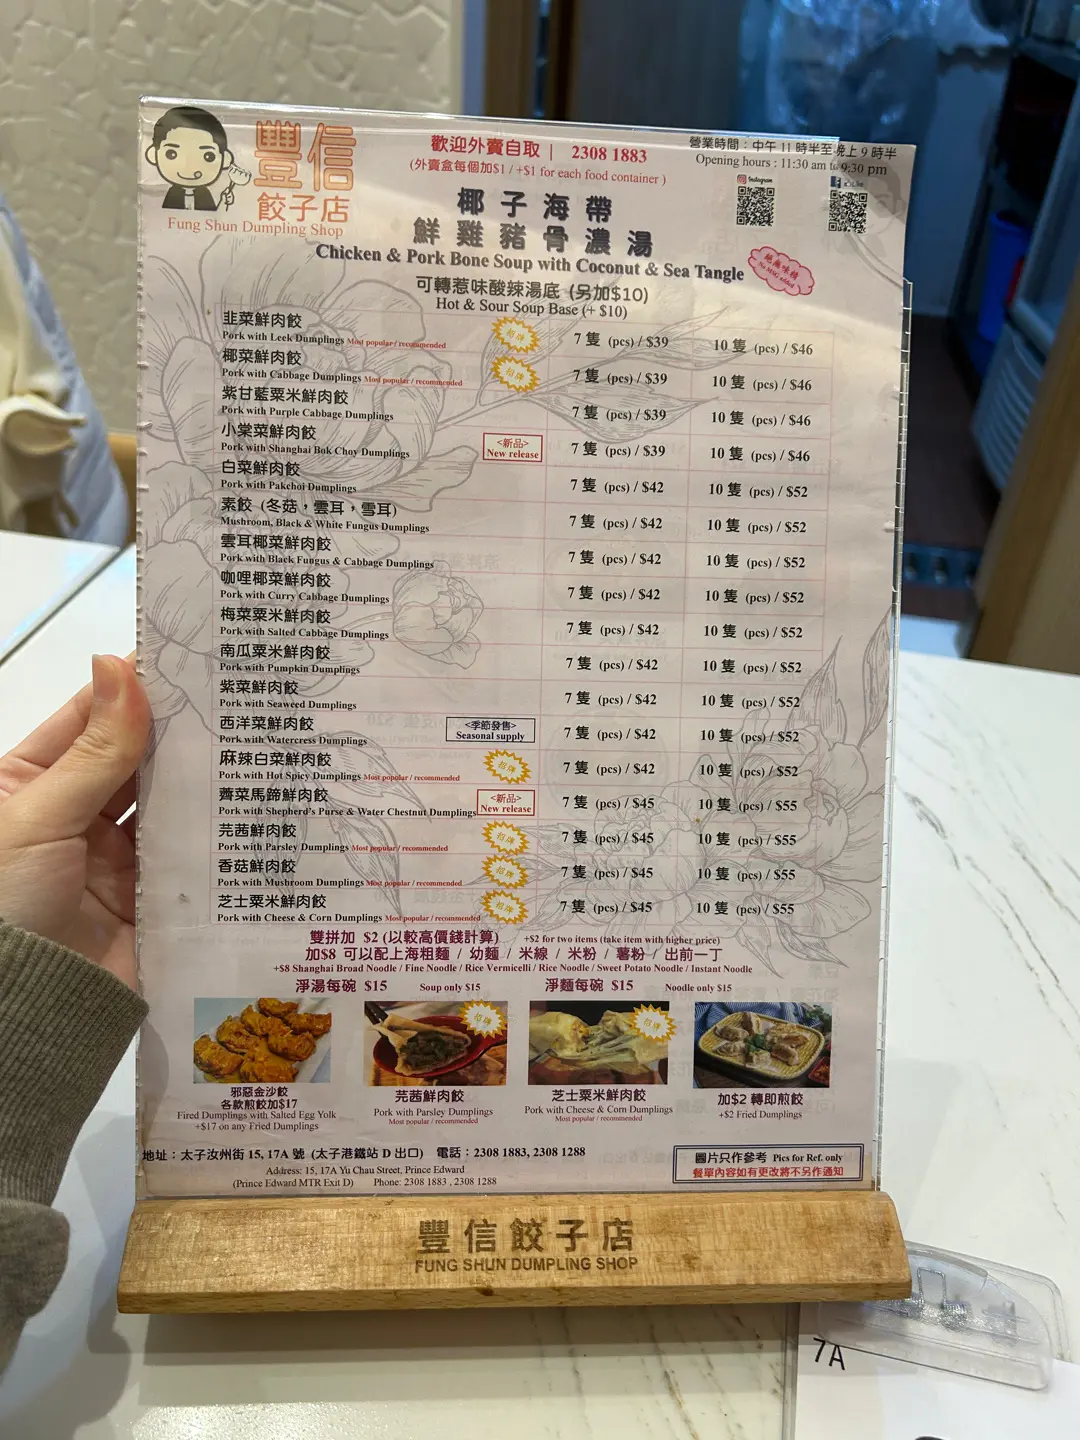 豐信
餃子店
Fung Shun Dumpling Shop
歡迎外賣自取 | 2308 1883
(外賣盒每個加$1 / +$1 for each food container )
營業時間：中午 11 時半至晚上 9 時半
Opening hours : 11:30 am to 9:30 pm
Instagram
椰子海帶
鮮雞豬骨濃湯
Chicken & Pork Bone Soup with Coconut & Sea Tangle
絕無味精
No MSG added
可轉惹味酸辣湯底 (另加$10)
Hot & Sour Soup Base (+ $10)
韭菜鮮肉餃
Pork with Leek Dumplings Most popular / recommended 招牌 7 隻 (pcs) / $39 10 隻 (pcs) / $46
椰菜鮮肉餃
Pork with Cabbage Dumplings Most popular / recommended 招牌 7 隻 (pcs) / $39 10 隻 (pcs) / $46
紫甘藍粟米鮮肉餃
Pork with Purple Cabbage Dumplings 7 隻 (pcs) / $39 10 隻 (pcs) / $46
小棠菜鮮肉餃 <新品>
Pork with Shanghai Bok Choy Dumplings New release 7 隻 (pcs) / $39 10 隻 (pcs) / $46
白菜鮮肉餃
Pork with Pakchoi Dumplings 7 隻 (pcs) / $42 10 隻 (pcs) / $52
素餃 (冬菇，雲耳，雪耳)
Mushroom, Black & White Fungus Dumplings 7 隻 (pcs) / $42 10 隻 (pcs) / $52
雲耳椰菜鮮肉餃
Pork with Black Fungus & Cabbage Dumplings 7 隻 (pcs) / $42 10 隻 (pcs) / $52
咖哩椰菜鮮肉餃
Pork with Curry Cabbage Dumplings 7 隻 (pcs) / $42 10 隻 (pcs) / $52
梅菜粟米鮮肉餃
Pork with Salted Cabbage Dumplings 7 隻 (pcs) / $42 10 隻 (pcs) / $52
南瓜粟米鮮肉餃
Pork with Pumpkin Dumplings 7 隻 (pcs) / $42 10 隻 (pcs) / $52
紫菜鮮肉餃
Pork with Seaweed Dumplings 7 隻 (pcs) / $42 10 隻 (pcs) / $52
西洋菜鮮肉餃 <季節發售>
Pork with Watercress Dumplings Seasonal supply 7 隻 (pcs) / $42 10 隻 (pcs) / $52
麻辣白菜鮮肉餃
Pork with Hot Spicy Dumplings Most popular / recommended 招牌 7 隻 (pcs) / $42 10 隻 (pcs) / $52
薺菜馬蹄鮮肉餃 <新品>
Pork with Shepherd's Purse & Water Chestnut Dumplings New release 7 隻 (pcs) / $45 10 隻 (pcs) / $55
芫茜鮮肉餃
Pork with Parsley Dumplings Most popular / recommended 招牌 7 隻 (pcs) / $45 10 隻 (pcs) / $55
香菇鮮肉餃
Pork with Mushroom Dumplings Most popular / recommended 招牌 7 隻 (pcs) / $45 10 隻 (pcs) / $55
芝士粟米鮮肉餃
Pork with Cheese & Corn Dumplings Most popular / recommended 招牌 7 隻 (pcs) / $45 10 隻 (pcs) / $55
雙拼加 $2 (以較高價錢計算) +$2 for two items (take item with higher price)
加$8 可以配上海粗麵 / 幼麵 / 米線 / 米粉 / 薯粉 / 出前一丁
+$8 Shanghai Broad Noodle / Fine Noodle / Rice Vermicelli / Rice Noodle / Sweet Potato Noodle / Instant Noodle
淨湯每碗 $15 Soup only $15 淨麵每碗 $15 Noodle only $15
招牌
招牌
邪惡金沙餃
各款煎餃加$17
Fired Dumplings with Salted Egg Yolk
+$17 on any Fried Dumplings
芫茜鮮肉餃
Pork with Parsley Dumplings
Most popular / recommended
芝士粟米鮮肉餃
Pork with Cheese & Corn Dumplings
Most popular / recommended
加$2 轉即煎餃
+$2 Fried Dumplings
地址：太子汝州街 15, 17A 號 (太子港鐵站 D 出口) 電話：2308 1883, 2308 1288
Address: 15, 17A Yu Chau Street, Prince Edward
(Prince Edward MTR Exit D) Phone: 2308 1883 , 2308 1288
圖片只作參考 Pics for Ref. only
餐單內容如有更改將不另作通知
豐信餃子店
FUNG SHUN DUMPLING SHOP
7A